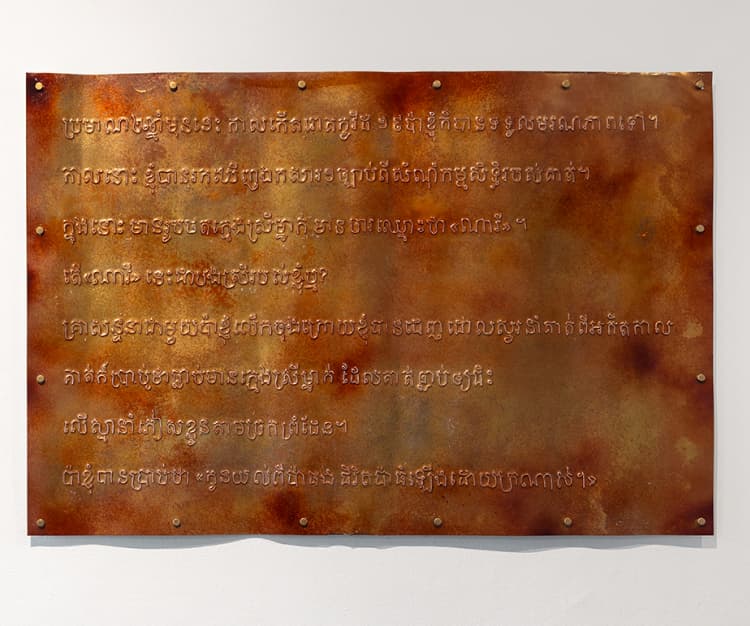 ប្រមាណ២ឆ្នាំមុននេះ កាលកើតរោគកូវីដ ១៩ប៉ាខ្ញុំក៏បានទទួលមរណភាពទៅ។
កាលនោះ ខ្ញុំបានរកឃើញឯកសារ១ច្បាប់ពីសំណុំកម្មសិទ្ធិរបស់គាត់។
ក្នុងនោះ មានរូបថតក្មេងស្រីម្នាក់ មាន ឈ្មោះថា «ណារី» ។
តើ«ណារី» នេះជាបងស្រីរបស់ខ្ញុំឬ?
គ្រាសន្ទនាជាមួយប៉ាខ្ញុំលើកចុងក្រោយខ្ញុំបានដេញ ដោលសួរនាំគាត់ពីអតីតកាល
គាត់ក៏ប្រាប់ថាធ្លាប់មានក្មេងស្រីម្នាក់ ដែលគាត់ធ្លាប់ឲ្យជិះ
លើស្មានាំភៀសខ្លួនតាមច្រកព្រំដែន។
ប៉ាខ្ញុំបានប្រាប់ថា «កូនយល់ពីប៉ាផង ជីវិតប៉ាធំឡើងដោយត្រណាស់។»